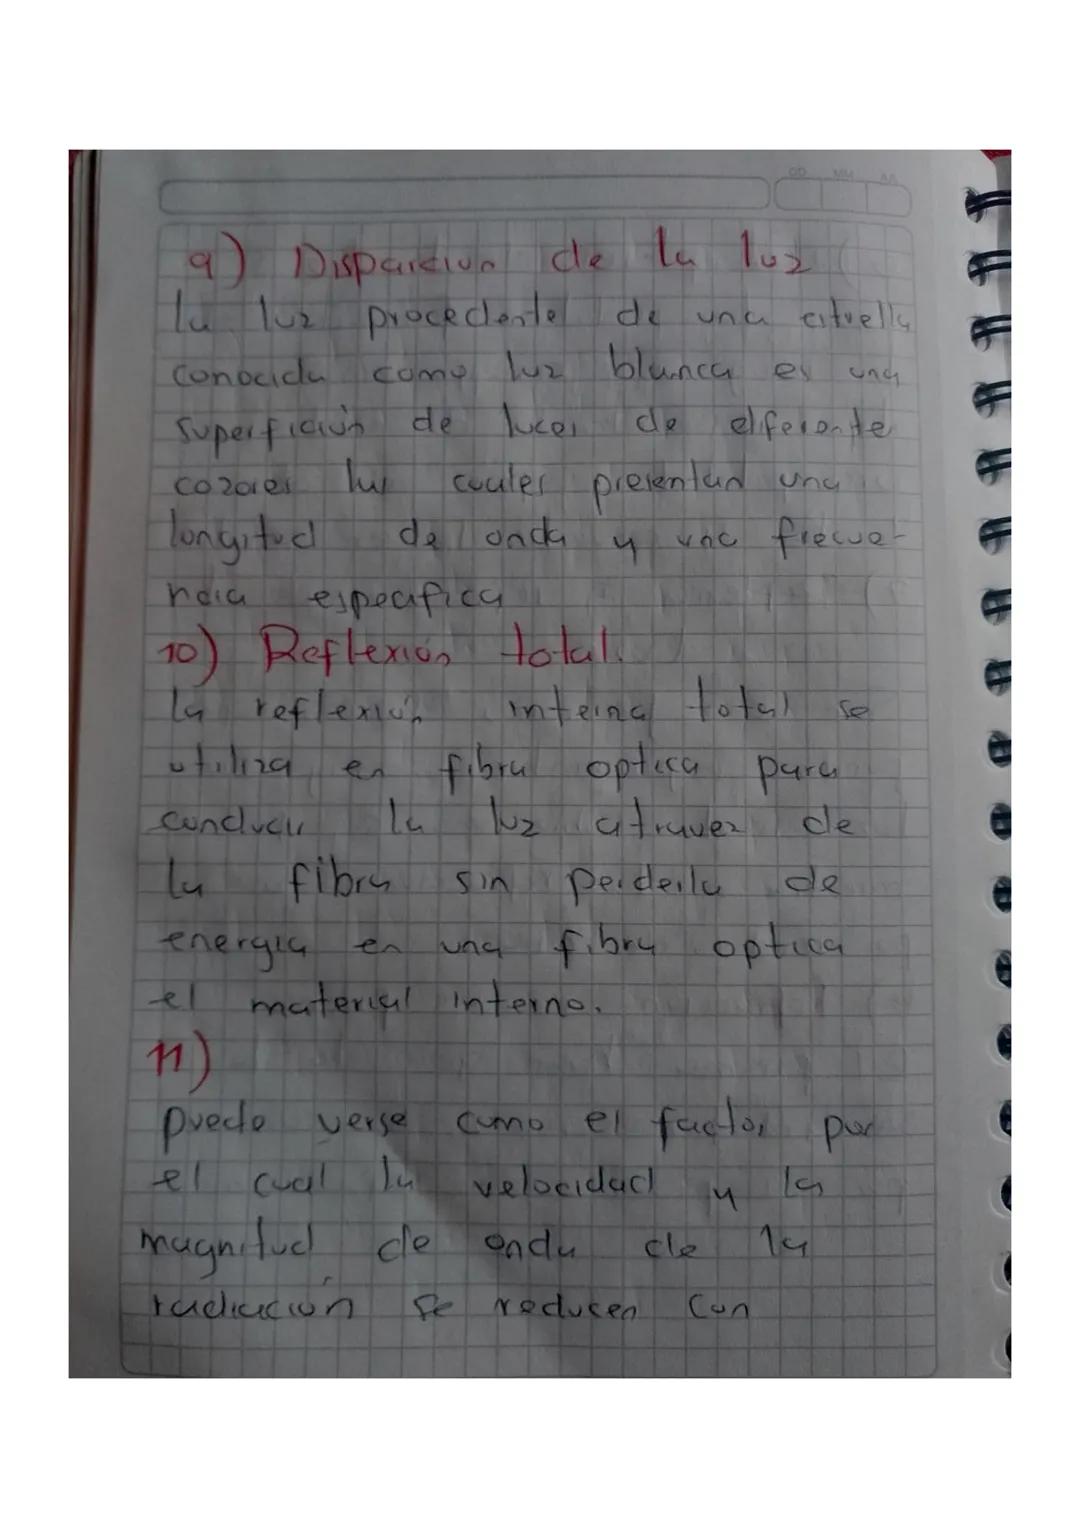 DD MM AA
9) Disparcion de la luz
la luz procedente de una estrella
conocida como luz blanca es una
superfición de luces de diferente
cozores las cuales presentan una
longitud de onda y una frecue-
ncia especifica
10) Reflexión total.
la reflexión interna total se
utiliza en fibra optica para
conducir la luz atravez de
la fibra sin perderla de
energia en una fibra optica
el material interno.
11)
puede verse como el factor por
el cual la velocidad y la
magnitud de onda de la
radiación se reducen con